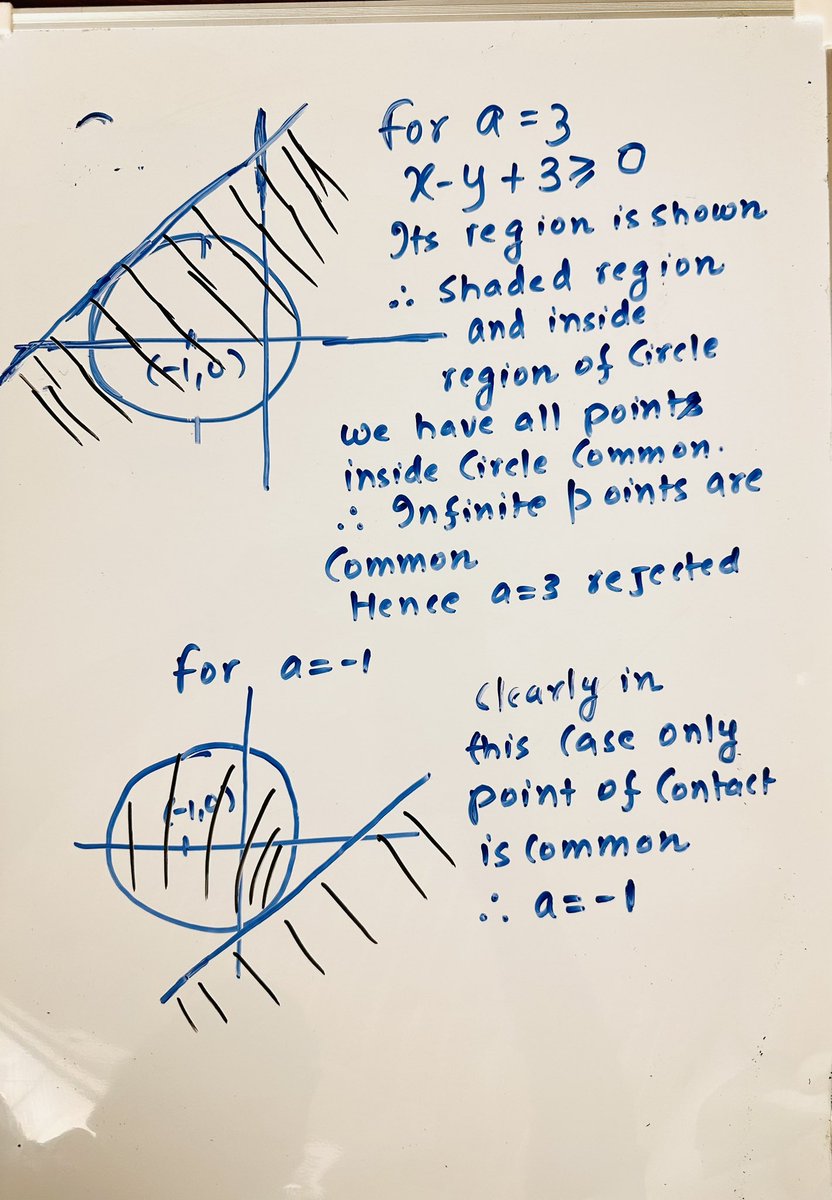 for a = 3
x - y + 3 ⩾ 0
Its region is shown
∴ Shaded region
and inside
region of Circle
(-1,0)
we have all points
inside Circle Common.
∴ Infinite points are
Common
Hence a=3 rejected
for a=-1
Clearly in
this Case only
point of Contact
is Common
∴ a=-1
(-1,0)